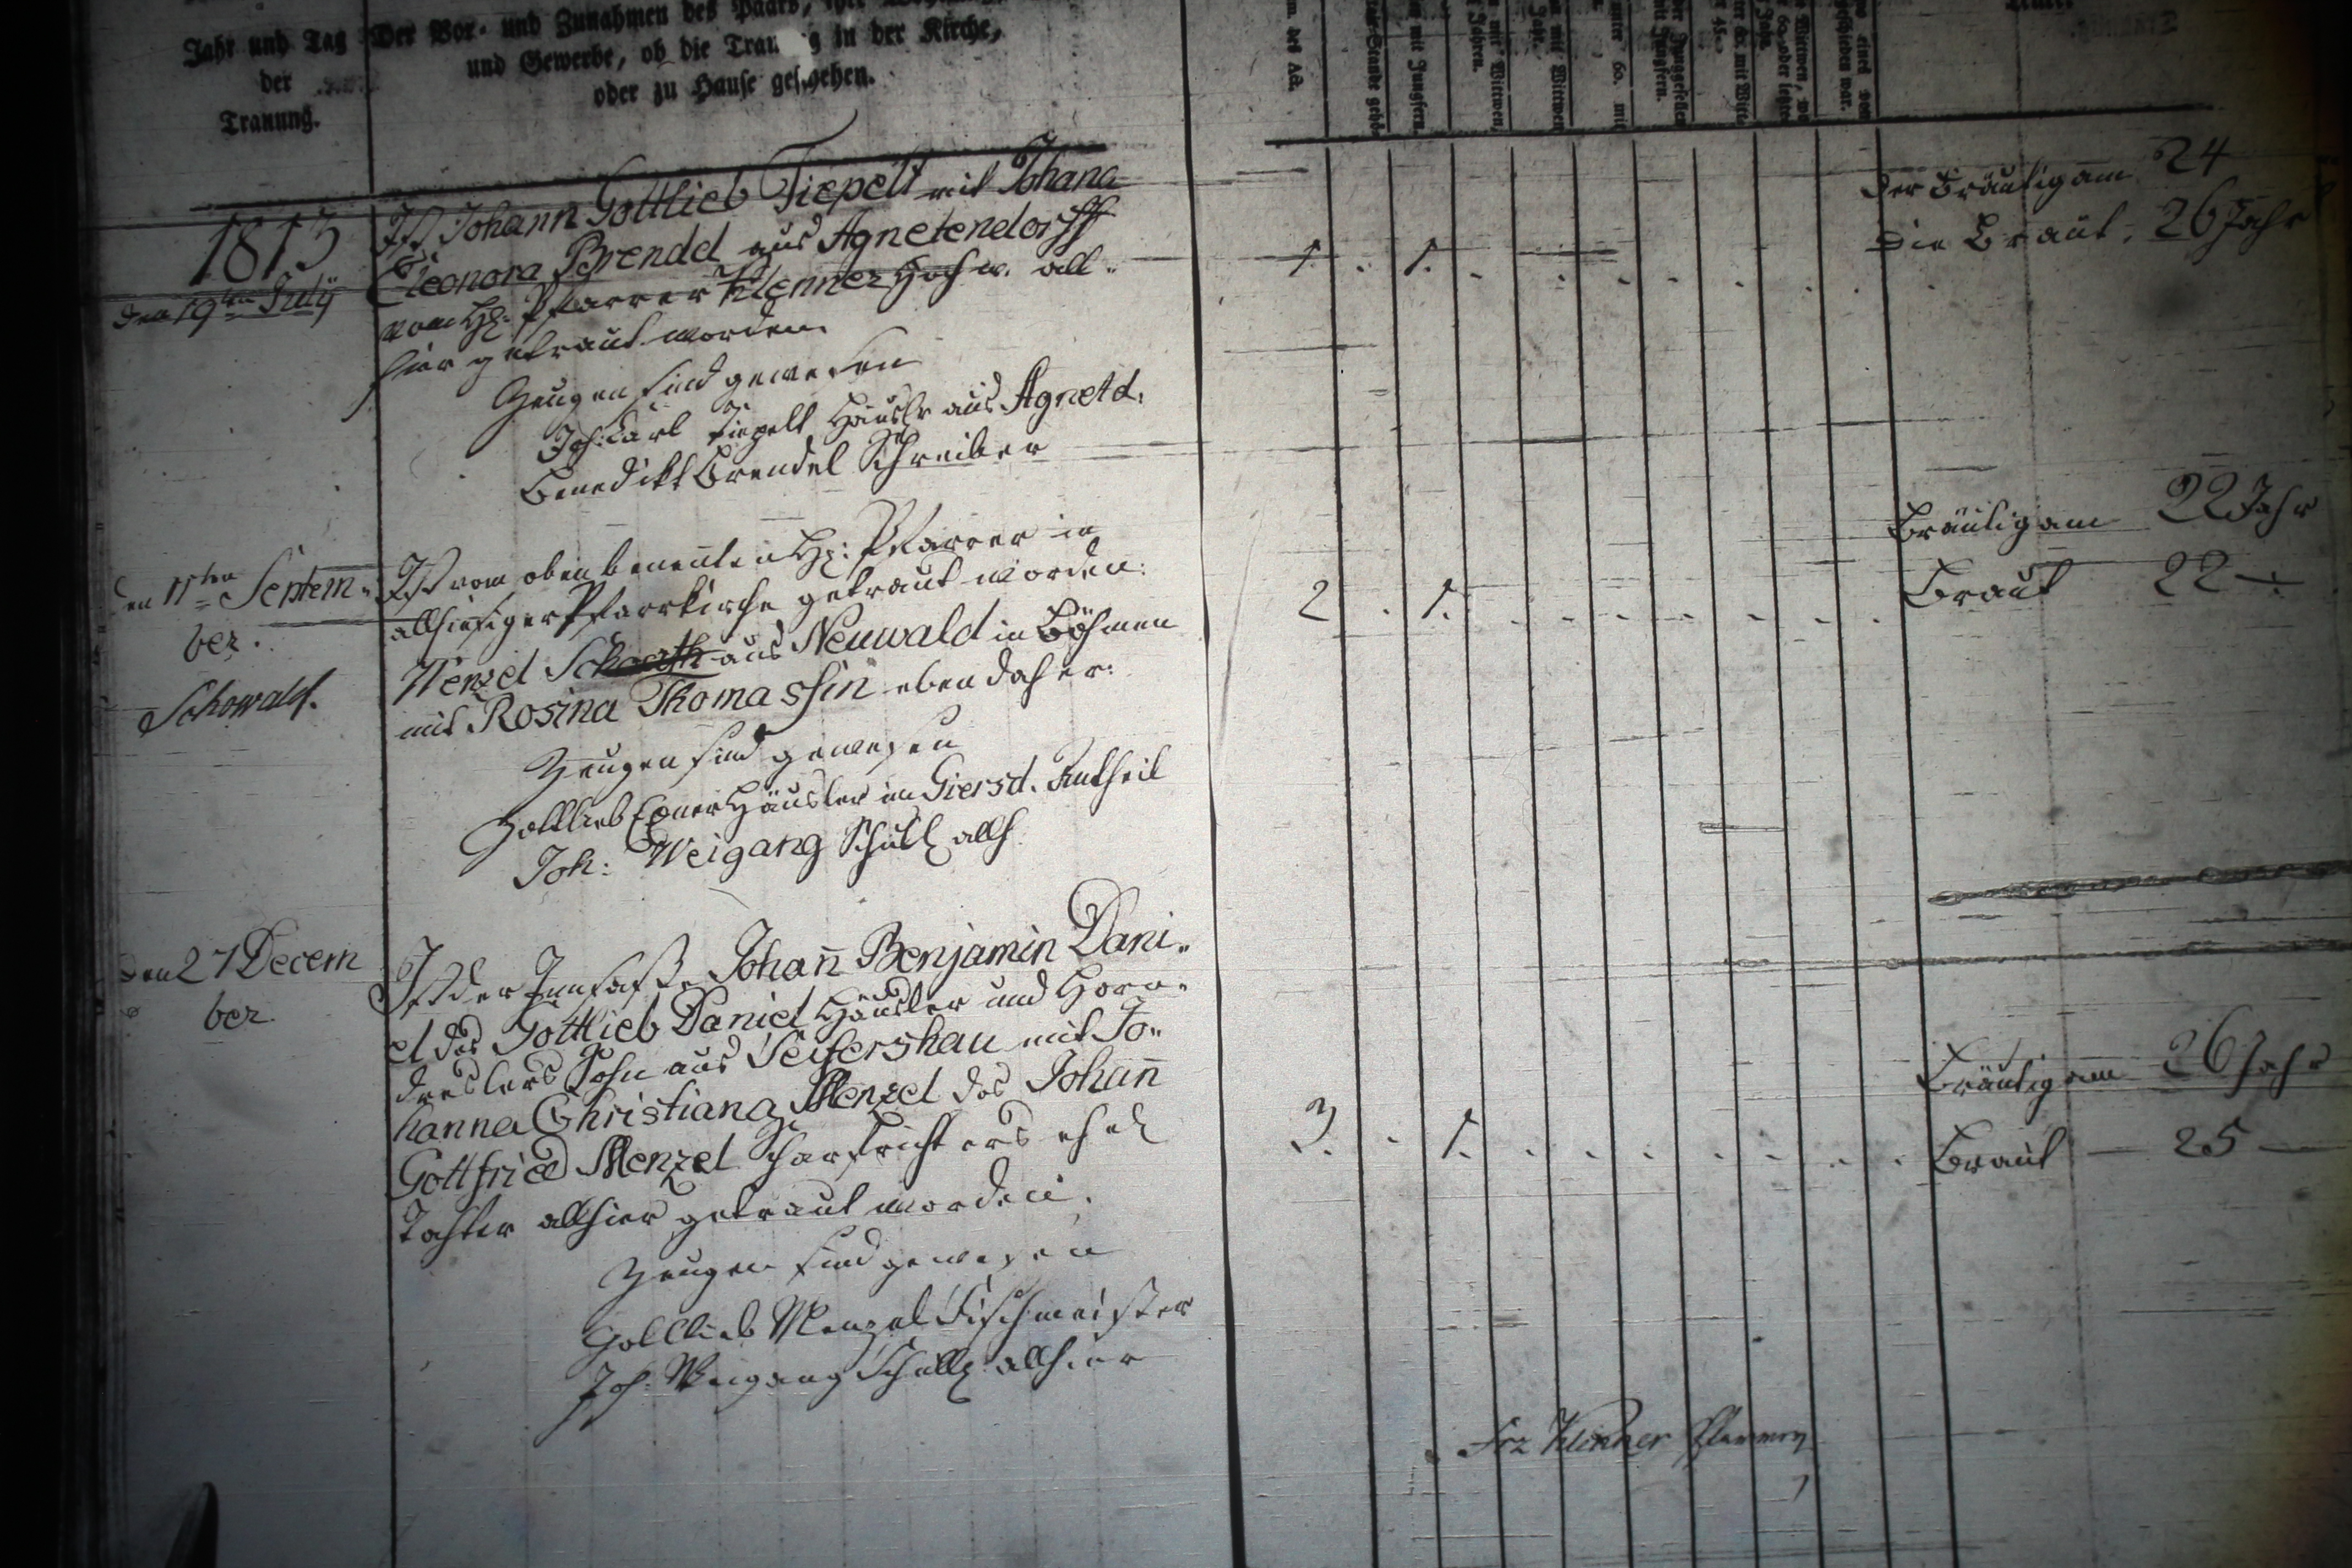 Jahr und Tag
der
Trauung.
Der Vor- und Zunahmen des Paars,
und Gewerbe, ob die Trau g in der Kirche,
oder zu Hause gescehen.
1813
den 19ten July
Ist Johann Gottlieb Tiepelt mit Johana
Eleonora Brendel aus Agnetendorff
vom H: Pfarrer Klenner Hochw. all-
hier getraut worden.
Zeugen sind gewesen
Joh: Carl Tiepelt Häusler aus Agnetd.
Benedikt Brendel Schreiber
1. . 1. . . . . . . .
Der Bräutigam 24
Die Braut. 26 Jahr
den 11ten Septem-
ber.
Schowald.
Ist vom oben benenten H: Pfarrer in
allhiesiger Pfarrkirche getraut worden:
Wenzel aus Neuwald in Böhmen
mit Rosina Thomassin eben daher:
Zeugen sind gewesen
Gottlieb Exner Häusler im Giersd. Antheil
Joh: Weigang Schulz allh.
2 . 1. . . . . . . .
Bräutigam 22 Jahr
Braut 22 —
den 27 Decem
ber.
Ist der Innsaße Johan̄ Benjamin Dani-
el des Gottlieb Daniel Häusler und Horn-
dreslers Sohn aus Seifershau mit Jo-
hanna Christiana Menzel des Johan̄
Gottfried Menzel Scharfrichters ehel
Tochter allhier getraut worden.
Zeugen sind gewesen
Gottlieb Menzel Fischmeister
Joh. Weigang Schulz allhier
3. . 1. . . . . . . .
Bräutigam 26 Jahr
Braut — 25 —
Frz Klenner